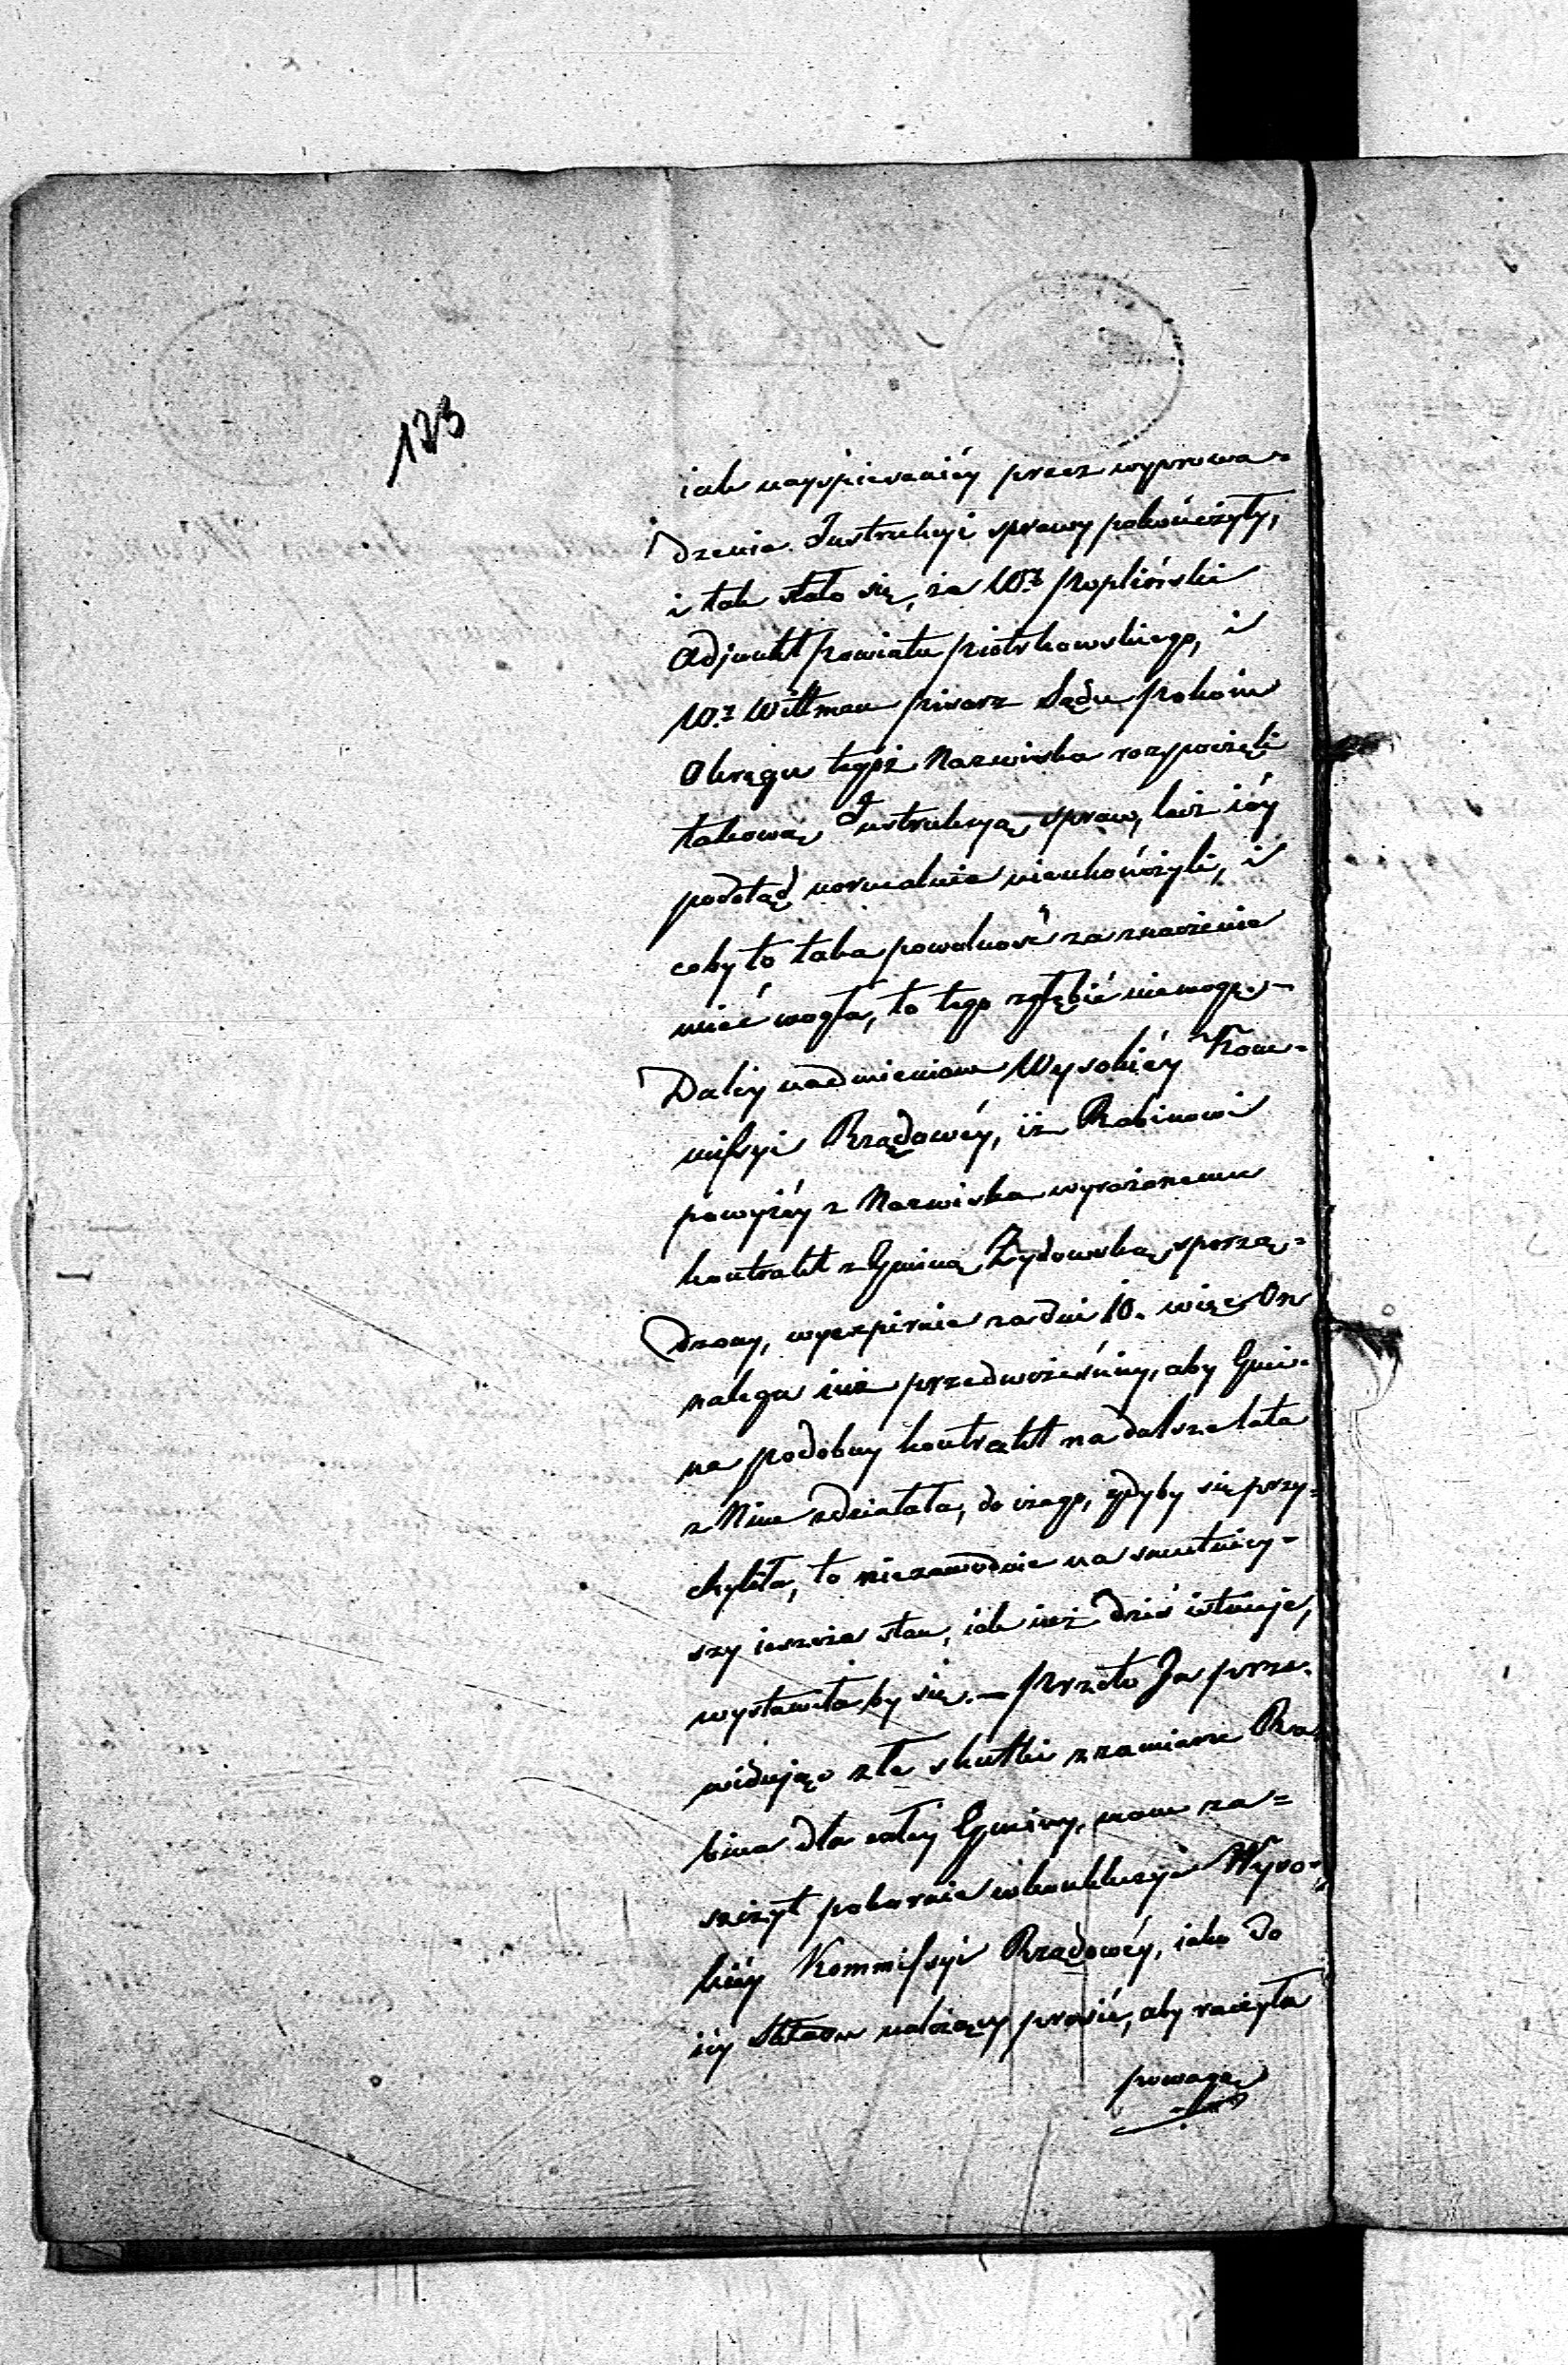 123
iak nayspieszniéy przez wyprowa=
dzenie Instrukcyi sprawy pokończyły,
i tak stało się, że W.z Kopliński
Adjunkt Powiatu Piotrkowskiego, i
W.z Wittman Pisarz Sądu Pokoiu
Okręgu tegoż Nazwiska rozpoczęli
takową Instrukcyą spraw, lecz iéy
podotąd normalnie nieukończyli, i
coby to taka powolność za znaczenie
mieć mogła, to tego zgłębić niemogę.—
Daléy nadmieniam Wysokiéy Kom=
missyi Rządowéy, iż Rabinowi
powyżéy z Nazwiska wyrażonemu
kontrakt z Gminą Żydowską sporzą=
dzony, wyexpiruie za dni 10. więc On
nalega iuż przedwcześniey, aby Gmi=
na podobny kontrakt na dalsze lata
z Nim zdziałała, do czego, gdyby się przy=
chyliła, to niezawodnie na smutniey=
szy ieszcze stan, iak iuż dziś istnieje,
wystawiła by się.— Przeto Ja prze=
widując złe skutki z zamiaru Ra=
bina dla całey Gminy, mam za=
szczyt pokornie w konkluzyi Wyso=
kiéy Kommissyi Rządowéy, iako do
iéy należący prosić, aby raczyła
powagą